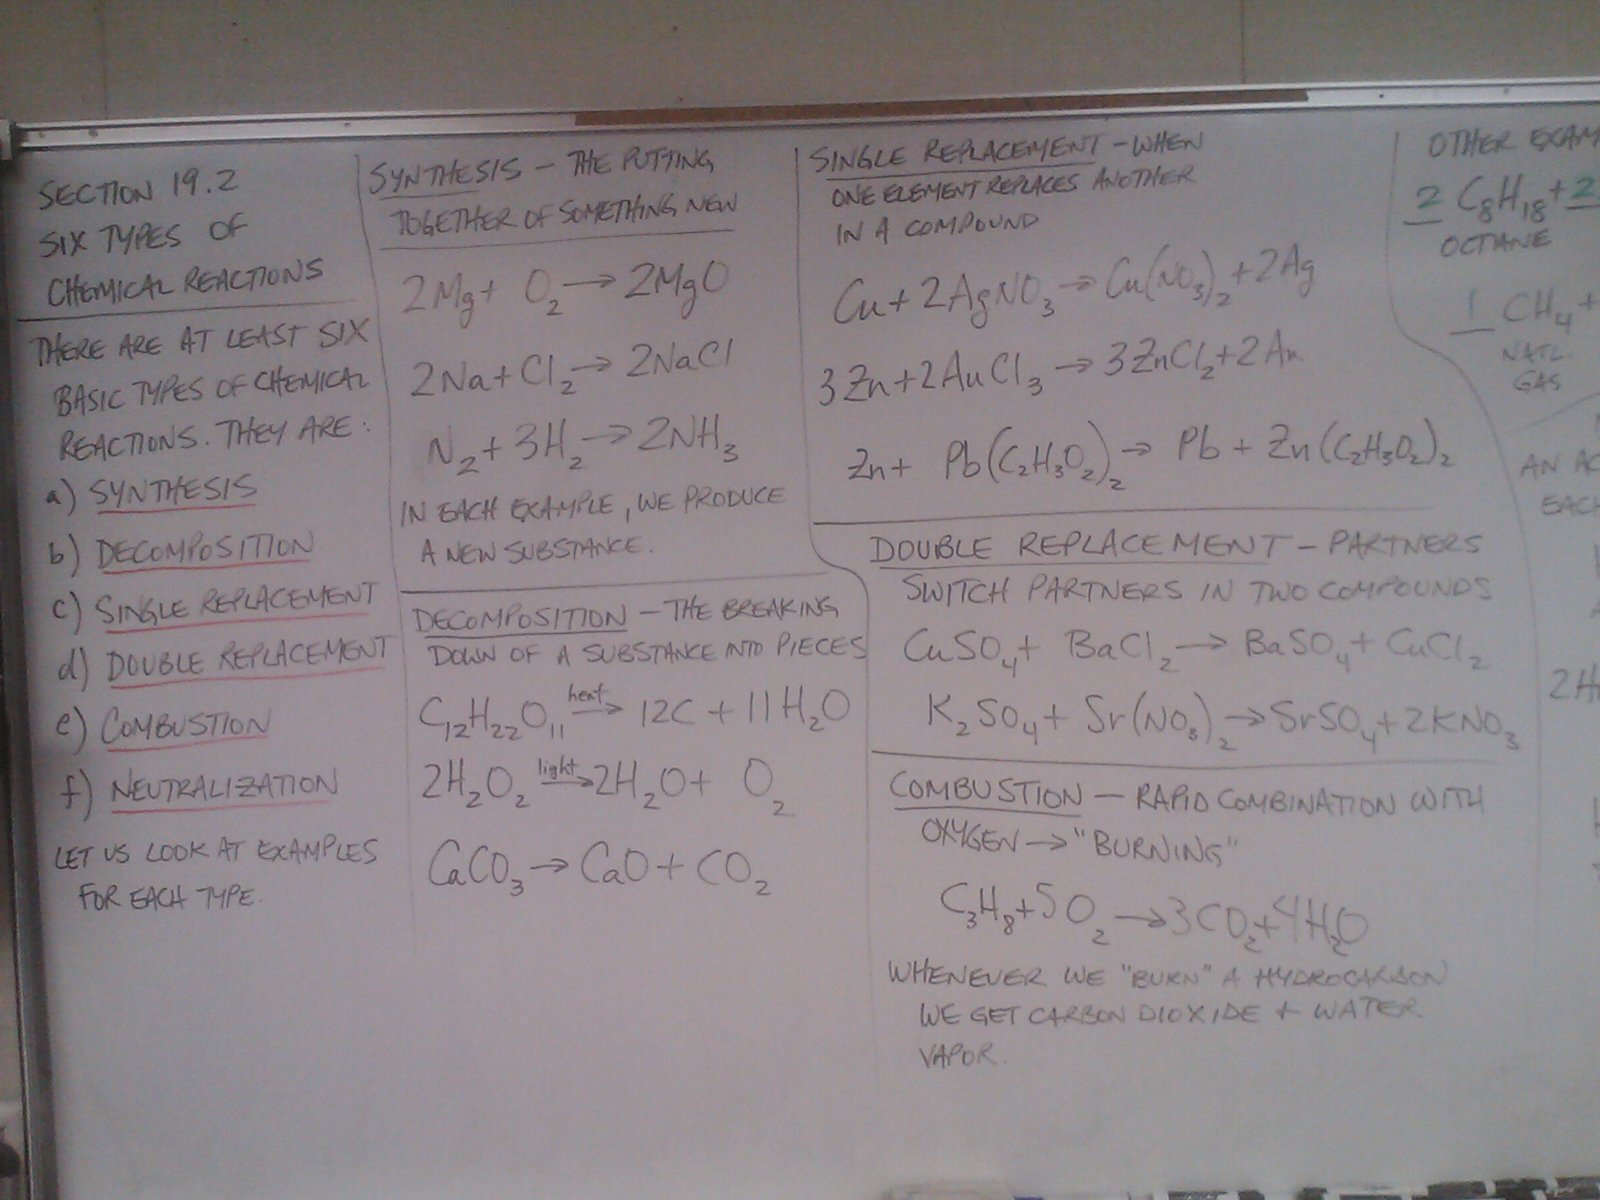 SECTION 19.2
SIX TYPES OF
CHEMICAL REACTIONS
THERE ARE AT LEAST SIX
BASIC TYPES OF CHEMICAL
REACTIONS. THEY ARE:
a) SYNTHESIS
b) DECOMPOSITION
c) SINGLE REPLACEMENT
d) DOUBLE REPLACEMENT
e) COMBUSTION
f) NEUTRALIZATION
LET US LOOK AT EXAMPLES
FOR EACH TYPE.
SYNTHESIS – THE PUTTING
TOGETHER OF SOMETHING NEW
2Mg + O₂ → 2MgO
2Na + Cl₂ → 2NaCl
N₂ + 3H₂ → 2NH₃
IN EACH EXAMPLE, WE PRODUCE
A NEW SUBSTANCE.
DECOMPOSITION – THE BREAKING
DOWN OF A SUBSTANCE INTO PIECES
C₁₂H₂₂O₁₁ heat→ 12C + 11H₂O
2H₂O₂ light→ 2H₂O + O₂
CaCO₃ → CaO + CO₂
SINGLE REPLACEMENT – WHEN
ONE ELEMENT REPLACES ANOTHER
IN A COMPOUND
Cu + 2AgNO₃ → Cu(NO₃)₂ + 2Ag
3Zn + 2AuCl₃ → 3ZnCl₂ + 2Au
Zn + Pb(C₂H₃O₂)₂ → Pb + Zn(C₂H₃O₂)₂
DOUBLE REPLACEMENT – PARTNERS
SWITCH PARTNERS IN TWO COMPOUNDS
CuSO₄ + BaCl₂ → BaSO₄ + CuCl₂
K₂SO₄ + Sr(NO₃)₂ → SrSO₄ + 2KNO₃
COMBUSTION – RAPID COMBINATION WITH
OXYGEN → "BURNING"
C₃H₈ + 5O₂ → 3CO₂ + 4H₂O
WHENEVER WE "BURN" A HYDROCARBON
WE GET CARBON DIOXIDE + WATER
VAPOR.
OTHER EXAM
2 C₈H₁₈ + 2
OCTANE
1 CH₄ +
NATL.
GAS
AN AC
EACH
2H